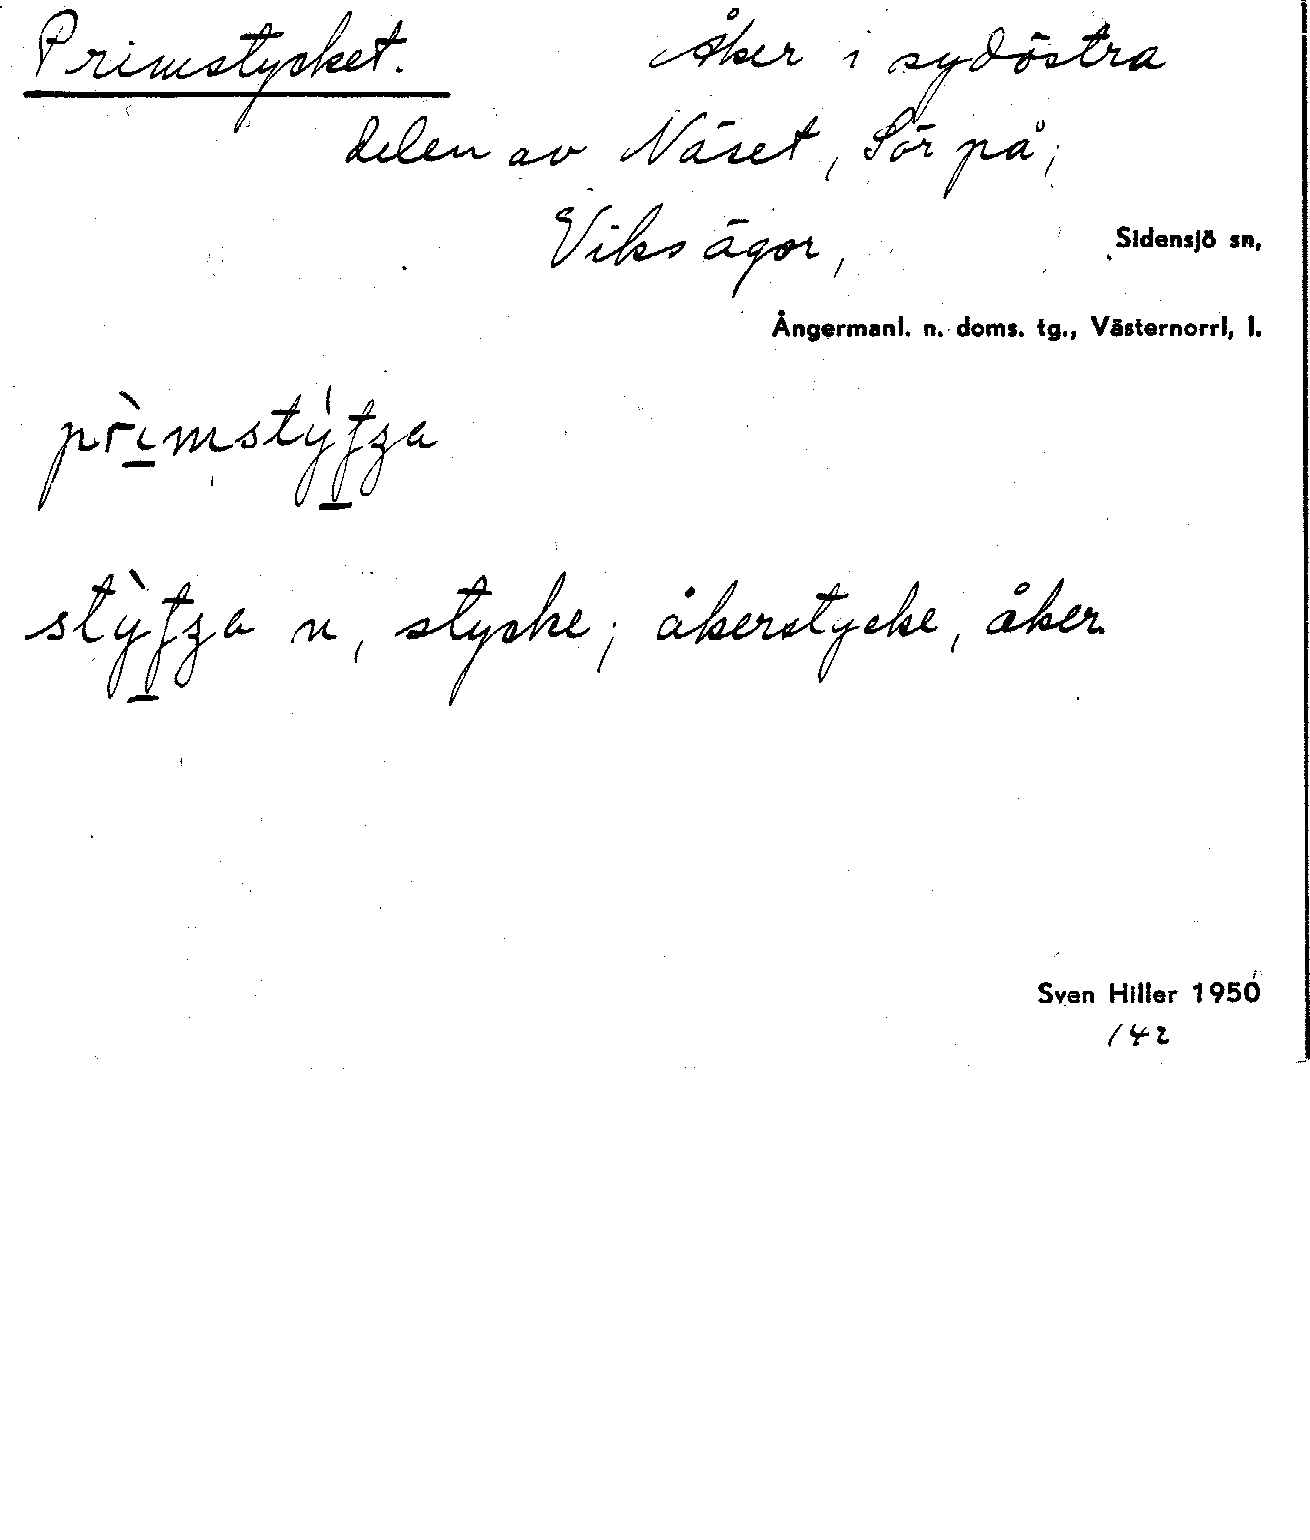 Primstycket. Åker i sydöstra
delen av Näset, Sör på,
Viks ägor, Sidensjö sn,
Ångermanl. n. doms. tg., Västernorrl, l.
prìmstýfza
stỳfza n, stycke; åkerstycke, åker
Sven Hiller 1950
142